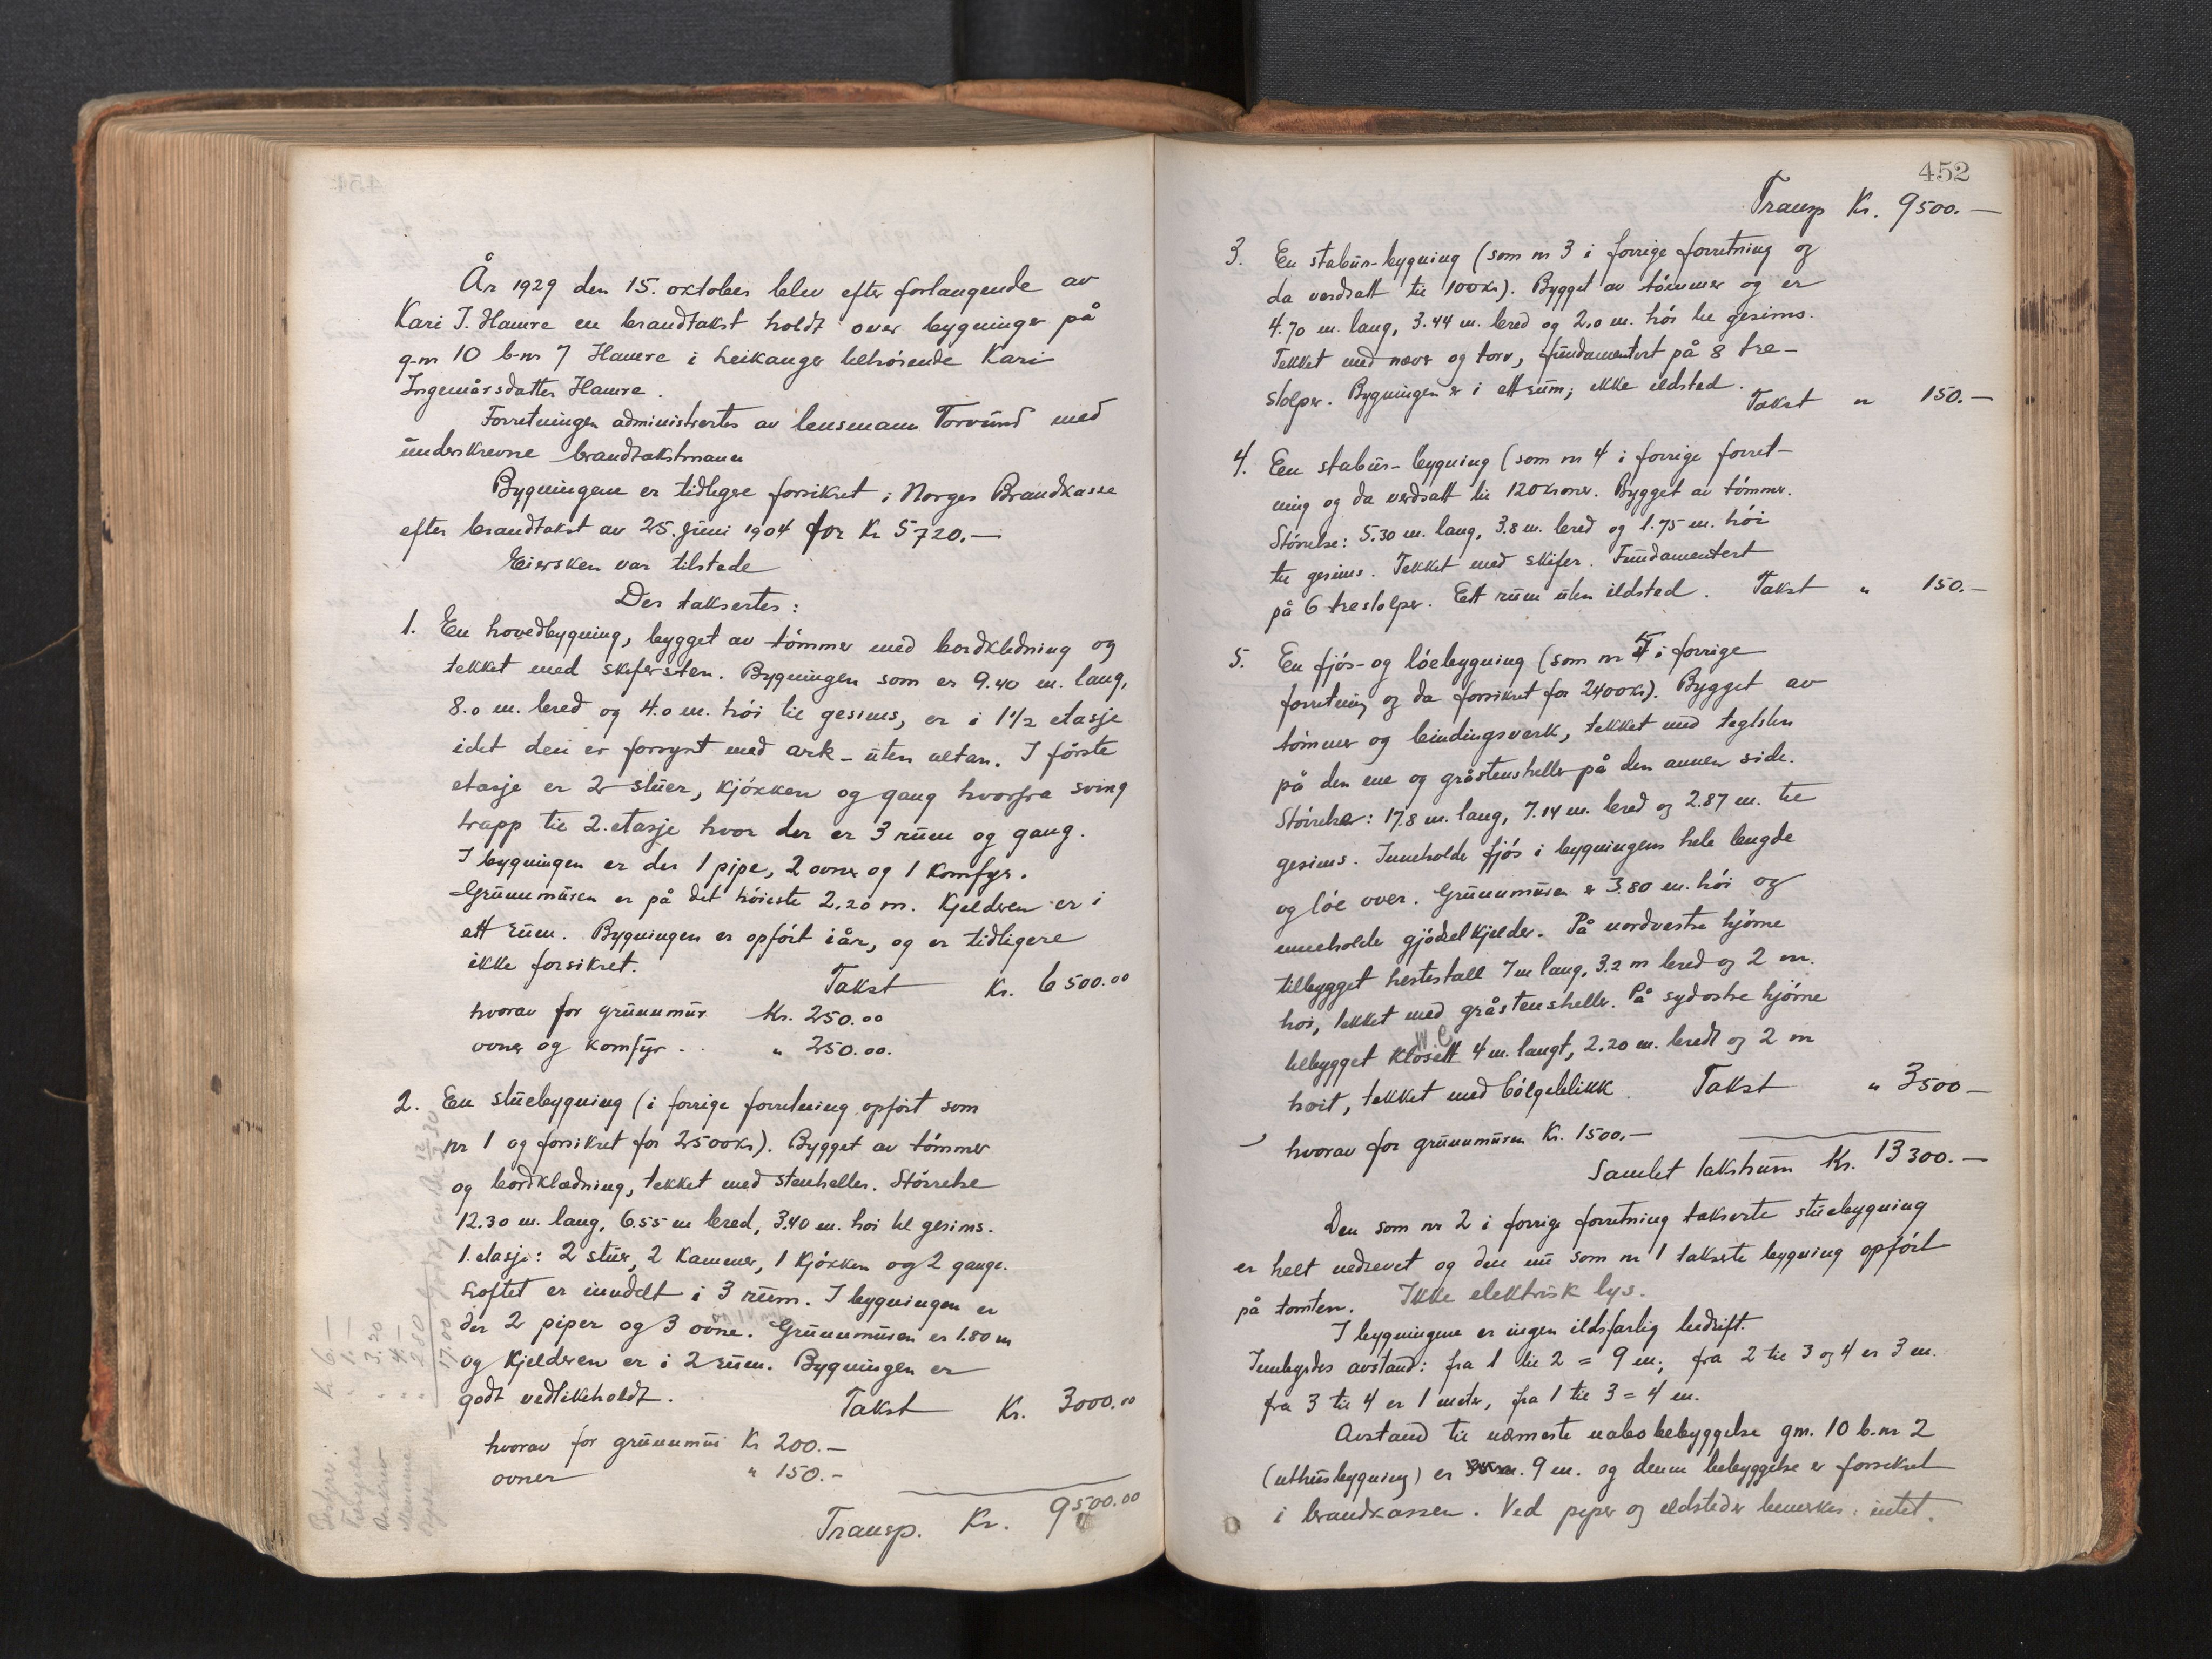 År 1929 den 15. oktober blev efter forlangende av
Kari J. Hamre en brandtakst holdt over bygninger på
g-nr 10 b-nr 7 Hamre i Leikanger tilhörende Kari
Ingemårsdatter Hamre.
Forretningen administrertes av lensmann Torvund med
underskrevne brandtakstmenn
Bygningene er tidligere forsikret i Norges Brandkasse
efter brandtakst av 25. juni 1904 for Kr 5720.—
Eiersken var tilstede
Der taksertes:
1. En hovedbygning, bygget av tömmer med bordkledning og
tekket med skifersten. Bygningen som er 9.40 m. lang,
8.0 m. bred og 4.0 m. höi til gesims, er i 1 1/2 etasje
idet den er forsynt med ark - uten altan. I förste
etasje er 2 stuer, kjökken og gang hvorfra sving
trapp til 2. etasje hvor der er 3 rum og gang.
I bygningen er der 1 pipe, 2 ovner og 1 komfyr.
Grunnmuren er på det höieste 2.20 m. Kjelderen er i
ett rum. Bygningen er opfört iår, og er tidligere
ikke forsikret.
Takst Kr. 6500.00
hvorav for grunnmur Kr. 250.00
ovner og komfyr . . " 250.00.
2. En stuebygning (i forrige forretning opfört som
nr 1 og forsikret for 2500kr). Bygget av tömmer
og bordklædning, tekket med stenheller. Störrelse
12.30 m. lang, 6.55 m bred, 3.40 m. höi til gesims.
1. etasje: 2 stuer, 2 kammer, 1 kjökken og 2 gange.
Loftet er inndelt i 3 rum. I bygningen er
der 2 piper og 3 ovne. Grunnmuren er 1.80 m
og kjelderen er i 2 rum. Bygningen er
godt vedlikeholdt.
Takst Kr. 3000.00
hvorav for grunnmur Kr 200.—
ovner " 150.—
Transp. Kr. 9500.00
Kr. 6.—
" 1.—
" 3.20
" 4.—
" 2.80
17.00
452
Transp Kr. 9500.—
3. En stabur-bygning (som nr 3 i forrige forretning og
da verdsatt til 100kr). Bygget av tömmer og er
4.70 m. lang, 3.44 m. bred og 2.0 m. höi til gesims.
Tekket med never og torv, fundamentert på 8 tre-
stolper. Bygningen er i ett rum; ikke ildsted.
Takst " 150.—
4. Een stabur-bygning (som nr 4 i forrige forret-
ning og da verdsatt til 120kroner. Bygget av tömmer.
Störrelse: 5.30 m. lang, 3.8 m. bred og 1.75 m. höi
til gesims. Tekket med skifer. Fundamentert
på 6 trestolper. Ett rum uten ildsted. Takst " 150.—
5. En fjös- og löebygning (som nr 5 i forrige
forretning og da forsikret for 2400kr). Bygget av
tömmer og bindingsverk, tekket med teglsten
på den ene og gråstensheller på den annen side.
Störrelse: 17.8 m. lang, 7.14 m. bred og 2.87 m. til
gesims. Inneholder fjös i bygningens hele lengde
og löe over. Grunnmuren er 3.80 m. höi og
inneholder gjödselkjelder. På nordvestre hjörne
tilbygget hestestall 7 m lang, 3.2 m bred og 2 m.
höi, tekket med gråstensheller. På sydostre hjörne
W.C
tilbygget klosett 4 m. langt, 2.20 m. bredt og 2 m
höit, tekket med bölgeblikk. Takst " 3500—
hvorav for grunnmuren Kr. 1500.—
Samlet takstsum Kr. 13300.—
Den som nr 2 i forrige forretning takserte stuebygning
er helt nedrevet og den nu som nr 1 takserte bygning opfört
på tomten. Ikke elektrisk lys.
I bygningene er ingen ildsfarlig bedrift.
Innbyrdes avstand: fra 1 til 2 = 9 m; fra 2 til 3 og 4 er 3 m.
fra 3 til 4 er 1 meter, fra 1 til 3 = 4 m.
Avstand til nærmeste nabobebyggelse gnr. 10 b.-nr 2
(uthusbygning) er 9 m. og denne bebyggelse er forsikret
i brandkassen. Ved piper og ildsteder bemerkes: intet.